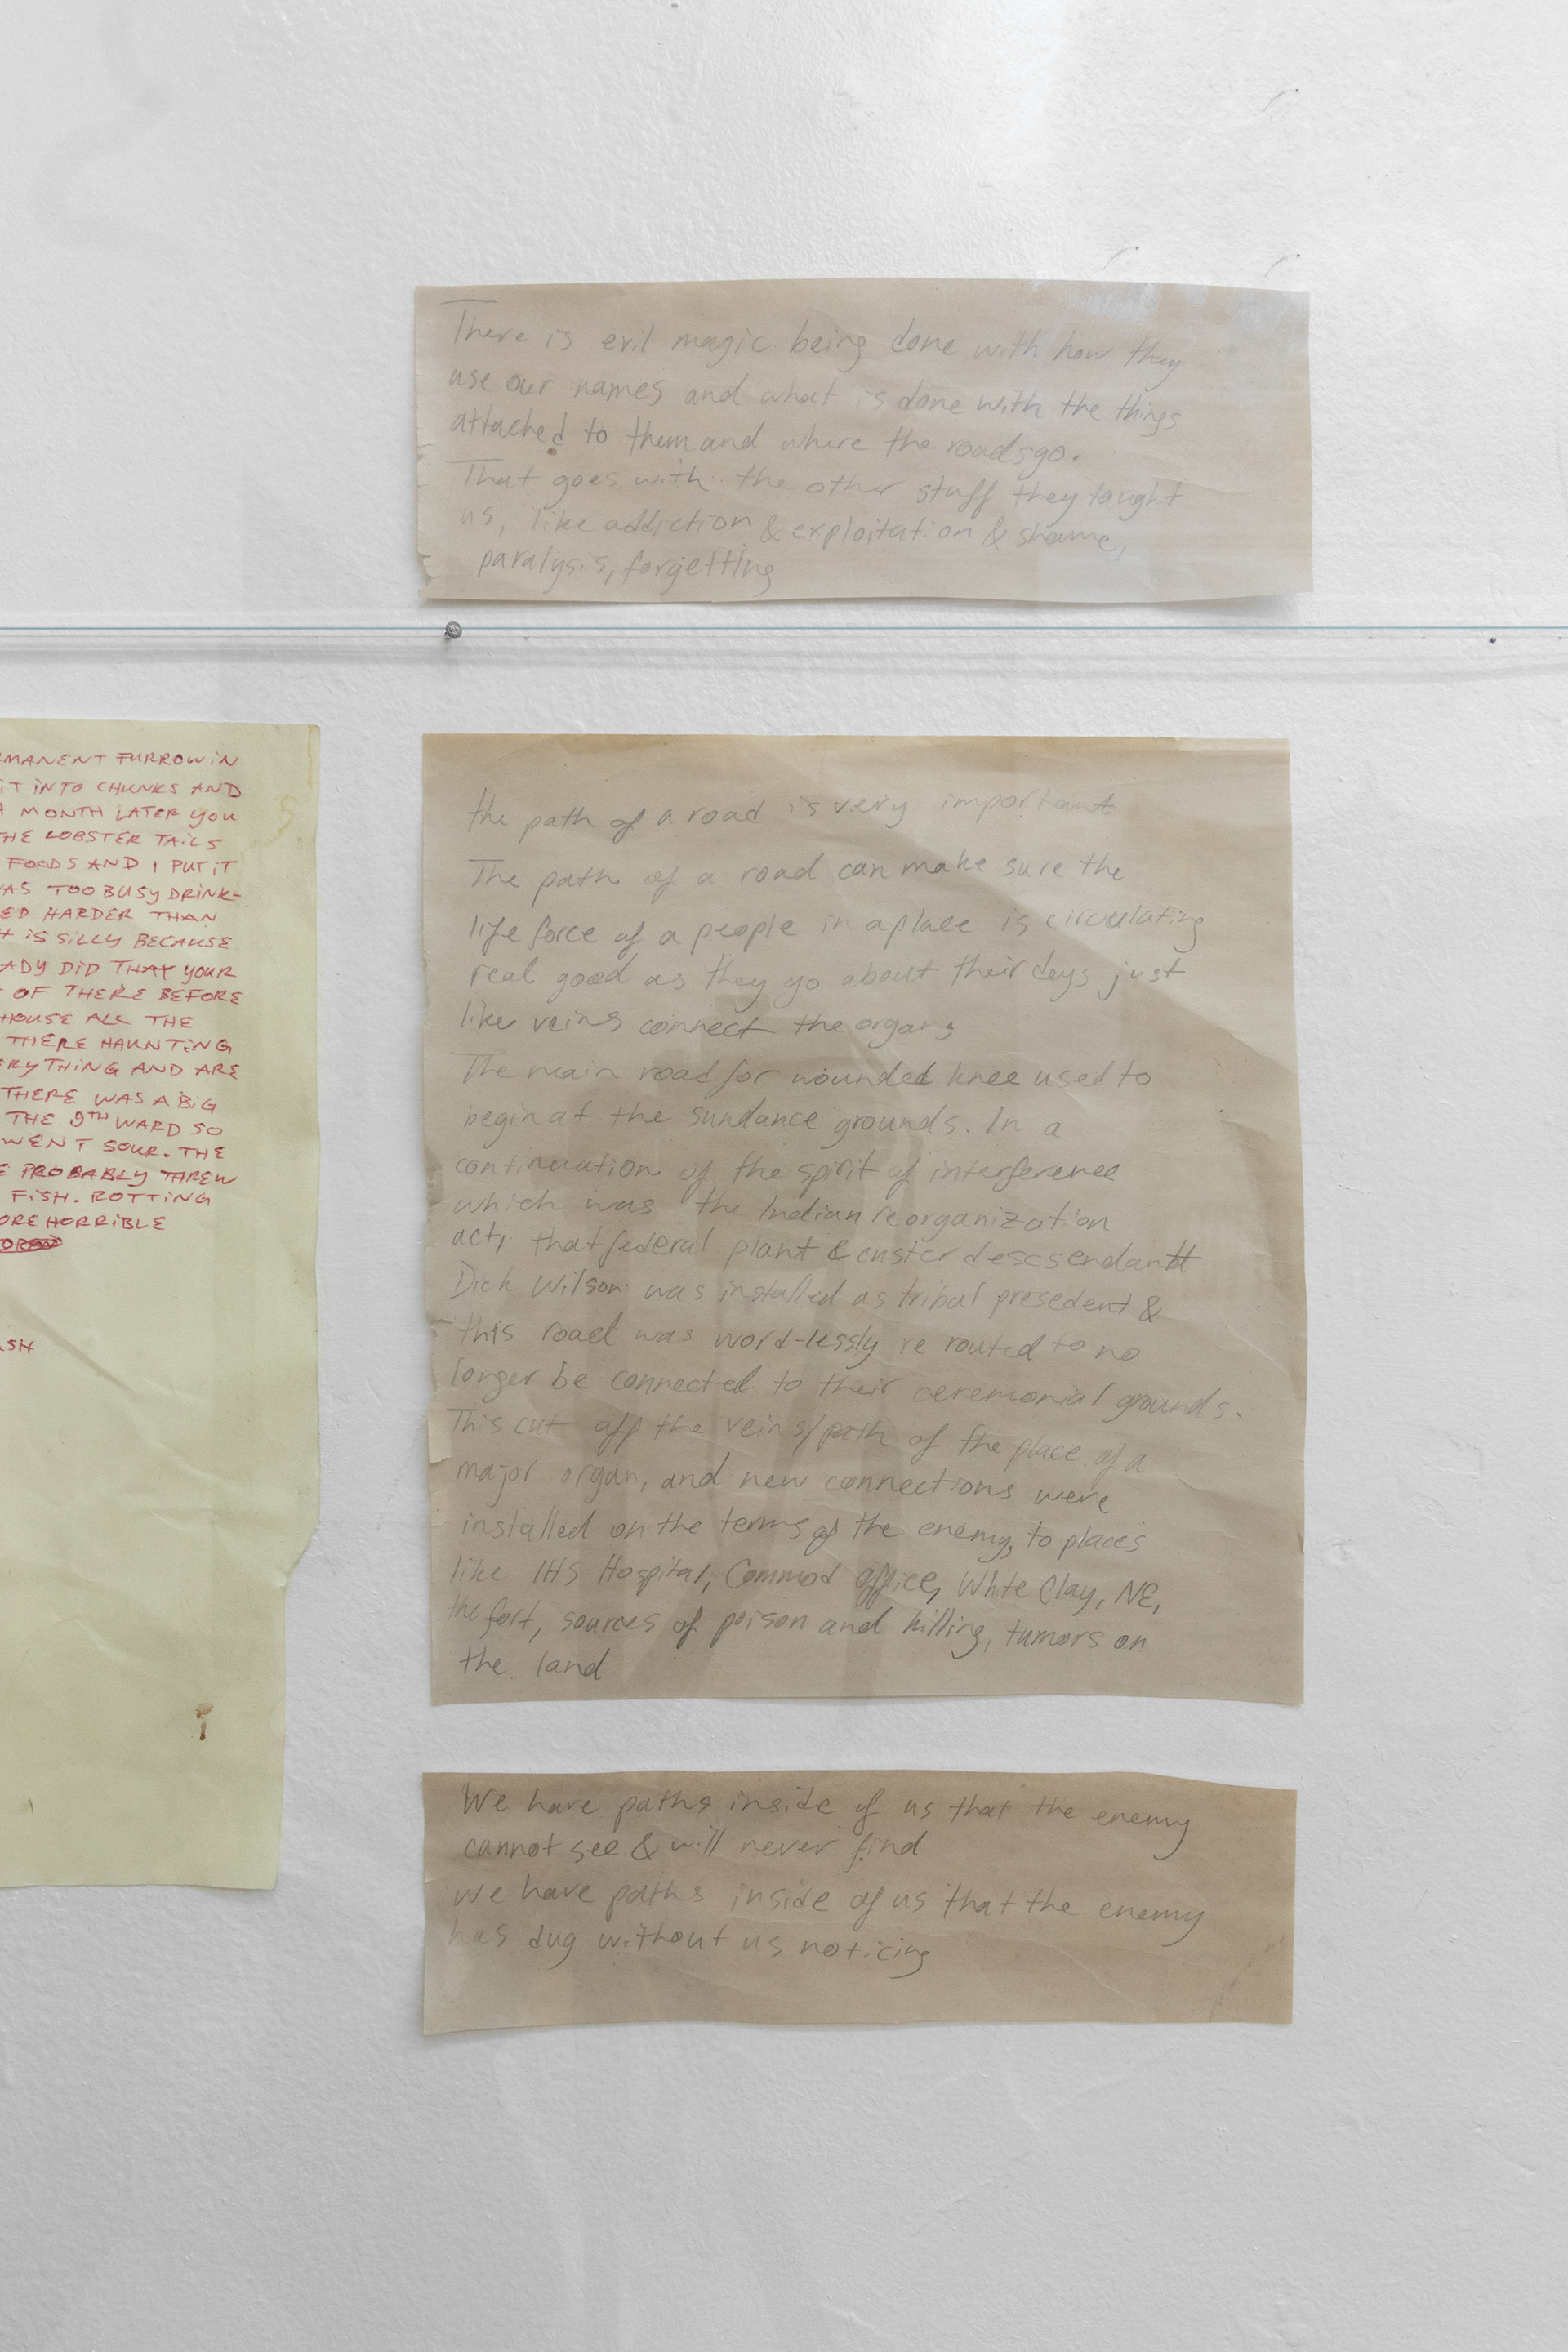 There is evil magic being done with how they
use our names and what is done with the things
attached to them and where the roads go.
That goes with the other stuff they taught
us, like addiction & exploitation & shame,
paralysis, forgetting
RMANENT FURROW IN
IT INTO CHUNKS AND
A MONTH LATER YOU
THE LOBSTER TAILS
FOODS AND I PUT IT
AS TOO BUSY DRINK-
ED HARDER THAN
H IS SILLY BECAUSE
ADY DID THAT YOUR
OF THERE BEFORE
HOUSE ALL THE
THERE HAUNTING
ERYTHING AND ARE
THERE WAS A BIG
THE 9TH WARD SO
WENT SOUR. THE
E PROBABLY THREW
FISH. ROTTING
ORE HORRIBLE
SH
the path of a road is very important
The path of a road can make sure the
life force of a people in a place is circulating
real good as they go about their days just
like veins connect the organs
The main road for wounded knee used to
begin at the sundance grounds. In a
continuation of the spirit of interference
which was the Indian reorganization
act, that federal plant & custer descsendant
Dick Wilson was installed as tribal presedent &
this road was word-lessly re routed to no
longer be connected to their ceremonial grounds.
This cut off the veins/path of the place of a
major organ, and new connections were
installed on the terms of the enemy, to places
like IHS Hospital, Commod office, White Clay, NE,
the fort, sources of poison and killing, tumors on
the land
We have paths inside of us that the enemy
cannot see & will never find
we have paths inside of us that the enemy
has dug without us noticing